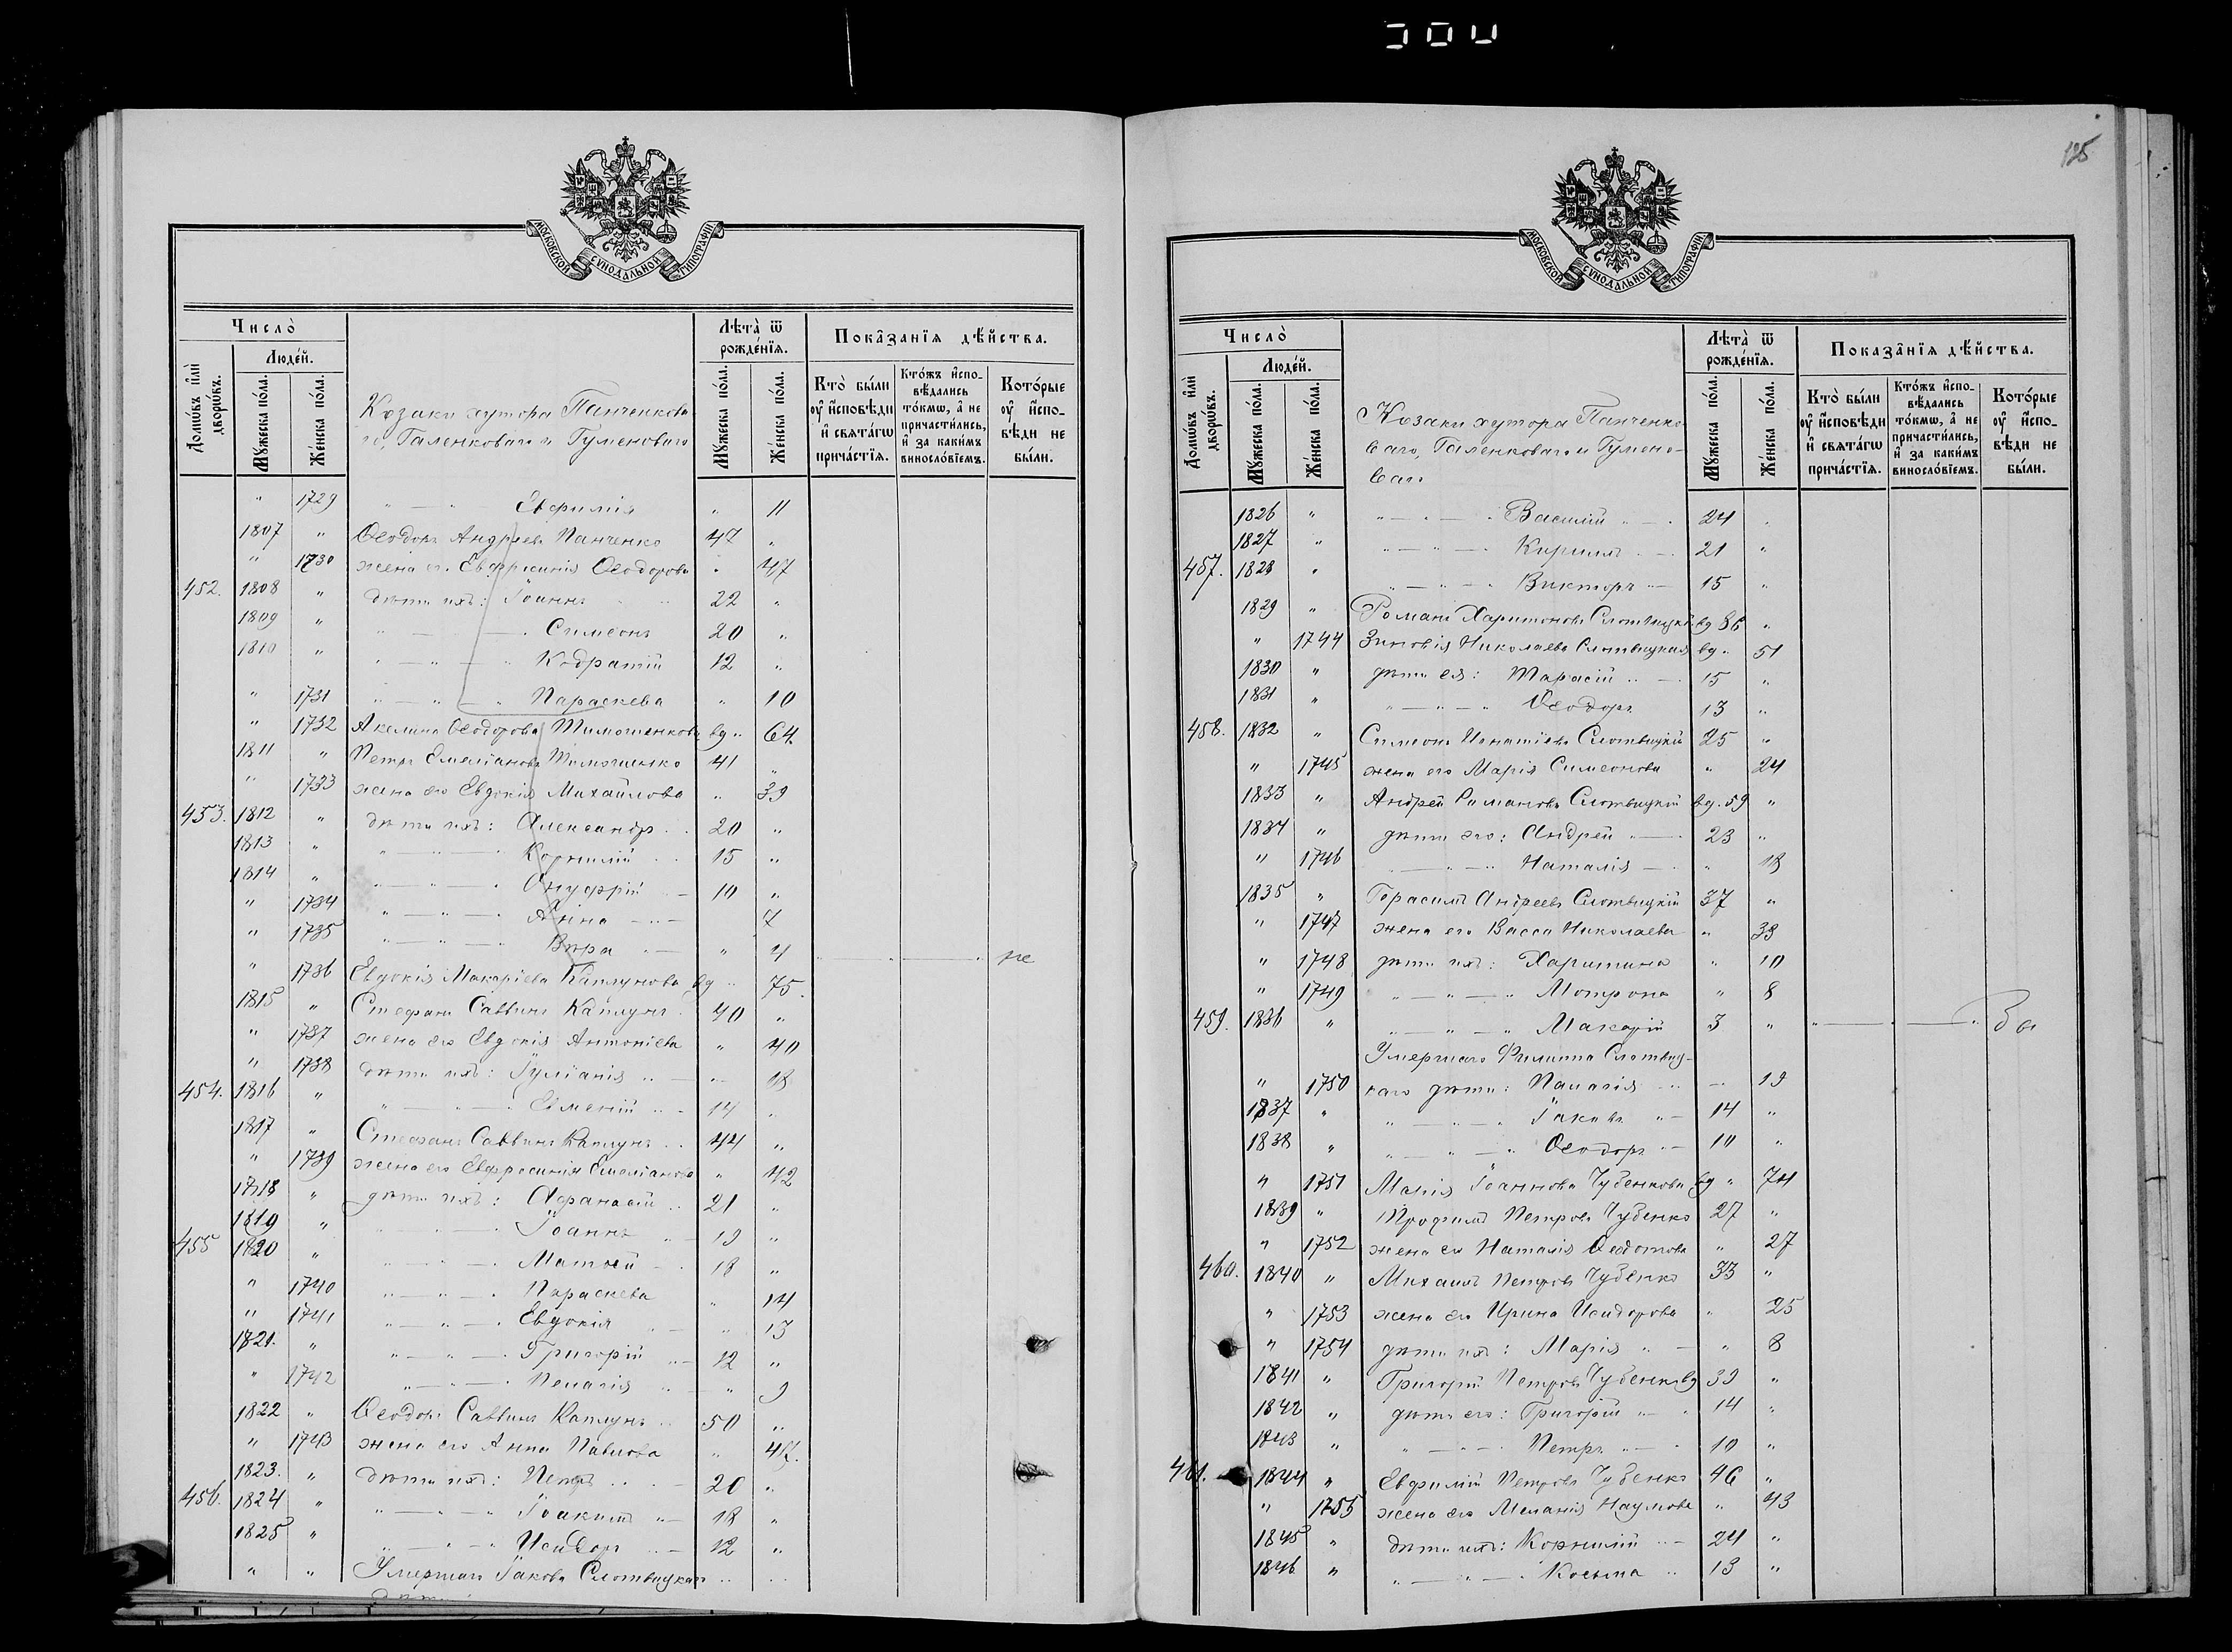 125
МОСКОВСКОЙ СУНОДАЛЬНОЙ ТИПОГРАФІИ
Число̀
Людѐй.
Домѡ́въ и҆лѝ дворѡ́въ.
Мꙋ́жеска по́ла.
Же́нска по́ла.
Козаки хутора Панченкова
го, Галенковаго и Гуменоваго
Лѣта̀ ѿ рожде́нїѧ.
Мꙋ́жеска по́ла.
Же́нска по́ла.
Показа̑нїѧ дѣ́йства.
Кто̀ бы́ли ᲂу҆ и҆сповѣди и҆ свѧта́гѡ прича́стїѧ.
Кто́жъ и҆сповѣдались то́кмѡ, а҆ не причастились, и҆ за каки́мъ винослов́їемъ.
Кото́рые ᲂу҆ и҆сповѣди не бы́ли.
" 1729 " — " Евфимія " 11
1807 " Ѳеодоръ Андреевъ Панченко 47 "
" 1730 жена ег. Евфросинія Ѳеодорова " 47
452. 1808 " дѣти ихъ: Іоаннъ 22 "
1809 " " — " Симеонъ 20 "
1810 " " — " — " Кодратій 12 "
" 1731 " — " — " Параскева " 10
" 1732 Акелина Ѳеодорова Тимошенкова вд " 64
1811 " Петръ Емеліановъ Тимошенко 41 "
" 1733 жена его Евдокія Михайлова " 39
453. 1812 " дѣти ихъ: Александръ 20 "
1813 " " — " — " Корнилій 15 "
1814 " " — " — " Онуфрій 10 "
" 1734 " — " — " Анна — " — 7
" 1735 " — " — " Вѣра " — " 4
" 1736 Евдокія Макаріева Каплунова вд " 75. " — " — " не
1815 " Стефанъ Саввинъ Каплунъ 40 "
" 1737 жена его Евдокія Антоніева " 40
" 1738 дѣти ихъ: Іуліанія " — " 18
454. 1816 " " — " — " Евменій " — 14 "
1817 " Стефанъ Саввинъ Каплунъ 44 "
" 1739 жена его Евфросинія Емеліанова " 42
1718 " дѣти ихъ: Аѳанасій 21 "
1819 " " — " — " Іоаннъ " — 19 "
455 1820 " " — " — " Матѳей — 18 "
" 1740 " — " — " Параскева " 14
" 1741 " — " — " Евдокія — " 13
1821. " " — " — " Григорій " — 12 "
" 1742 " — " — " Пелагія " — " 9
1822 " Ѳеодоръ Саввинъ Каплунъ 50 "
" 1743 жена его Анна Павлова " 47.
1823. " дѣти ихъ: Петръ 20 "
456. 1824 " " — " — " Іоакимъ " — 18 "
1825 " " — " — " Исидоръ " — 12 "
" " Умершаго Іакова Слотвицкаго
МОСКОВСКОЙ СУНОДАЛЬНОЙ ТИПОГРАФІИ
Число̀
Людѐй.
Домѡ́въ и҆лѝ дворѡ́въ.
Мꙋ́жеска по́ла.
Же́нска по́ла.
Козаки хутора Панченко
ваго, Галенковаго и Гумено-
ваго
Лѣта̀ ѿ рожде́нїѧ.
Мꙋ́жеска по́ла.
Же́нска по́ла.
Показа̑нїѧ дѣ́йства.
Кто̀ бы́ли ᲂу҆ и҆сповѣди и҆ свѧта́гѡ прича́стїѧ.
Кто́жъ и҆сповѣдались то́кмѡ, а҆ не причасти́лись, и҆ за каки́мъ винослов́їемъ.
Кото́рые ᲂу҆ и҆сповѣди не бы́ли.
1826 " " — " — " Василій " — 24 "
1827 " " — " — " Кириллъ — 21 "
457. 1828 " " — " — " Викторъ " — 15 "
1829 " Романъ Харитоновъ Слотвицкій вд 86 "
" 1744 Зиновія Николаева Слотвицкая вд " 51
1830 " дѣти ея: Тарасій " — 15 "
1831 " " — " — " Ѳеодоръ 13 "
458. 1832 " Симеонъ Игнатіевъ Слотвицкій 25 "
" 1745 жена его Марія Симеонова " 24
1833 " Андрей Романовъ Слотвицкій вд. 59 "
1834 " дѣти его: Андрей " — 23 "
" 1746 " — " — " Наталія — " 18
1835 " Герасимъ Андреевъ Слотвицкій 37 "
" 1747 жена его Васса Николаева " 38
" 1748 дѣти ихъ: Харитина " 10
" 1749 " — " — " Мотрона " 8
459. 1836 " " — " — " Макарій 3 " " — " — " Два
Умершаго Филиппа Слотвиц-
" 1750 каго дѣти: Пелагія — " 19
1837 " " — " — " Іаковъ " — 14 "
1838 " " — " — " Ѳеодоръ " — 10 "
" 1751 Марія Іоаннова Чубенкова вд " 74
1839 " Трофимъ Петровъ Чубенко 27 "
" 1752 жена его Наталія Ѳедотова " 27
460. 1840 " Михаилъ Петровъ Чубенко 33 "
" 1753 жена его Ирина Исидорова " 25
" 1754 дѣти ихъ: Марія " — " 8
1841 " Григорій Петровъ Чубенко вд 39 "
1842 " дѣти его: Григорій " — 14 "
1843 " " — " — " Петръ " — 10 "
461. 1844 " Евфимій Петровъ Чубенко 46 "
" 1755 жена его Меланія Наумова " 43
1845 " дѣти ихъ: Корнилій " — 24 "
1846 " " — " — " Косьма 13 "